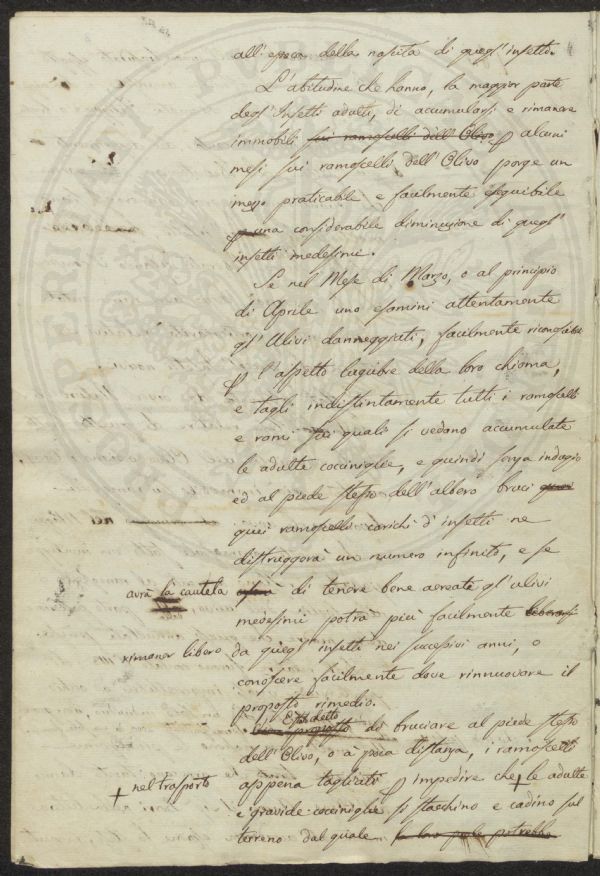 all'epoca della nascita di quegl'insetti.
L'abitudine che hanno, la maggior parte
degl'Insetti adulti, di accumularsi e rimanere
immobili sui ramoscelli dell'Olivo p alcuni
mesi sui ramoscelli dell'Olivo porge un
mezzo praticabile e facilmente eseguibile
p una considerabile diminuzione di quegl'
insetti medesimi.
Se nel Mese di Marzo, o al principio
di Aprile uno esamini attentamente
gl'Ulivi danneggiati, facilmente riconoscibili
p l'aspetto lugubre della loro chioma,
e tagli indistintamente tutti i ramoscelli
e rami sui quali si vedano accumulate
le adulte cocciniglie, e quindi senza indugio
ed al piede stesso dell'albero bruci quei
nei
quei ramoscelli carichi d'insetti ne
distruggerà un numero infinito, e se
avrà la cautela di tenere bene aereate gl'ulivi
medesimi potrà più facilmente liberarsi
rimaner libero da quegl'insetti nei successivi anni, o
conoscere facilmente dove rinnuovare il
proposto rimedio.
Ho detto
di bruciare al piede stesso
dell'Olivo, o a poca distanza, i ramoscelli
+ nel trasporto
appena tagliati p impedire che + le adulte
e gravide cocciniglie si stacchino e cadino sul
terreno dal quale